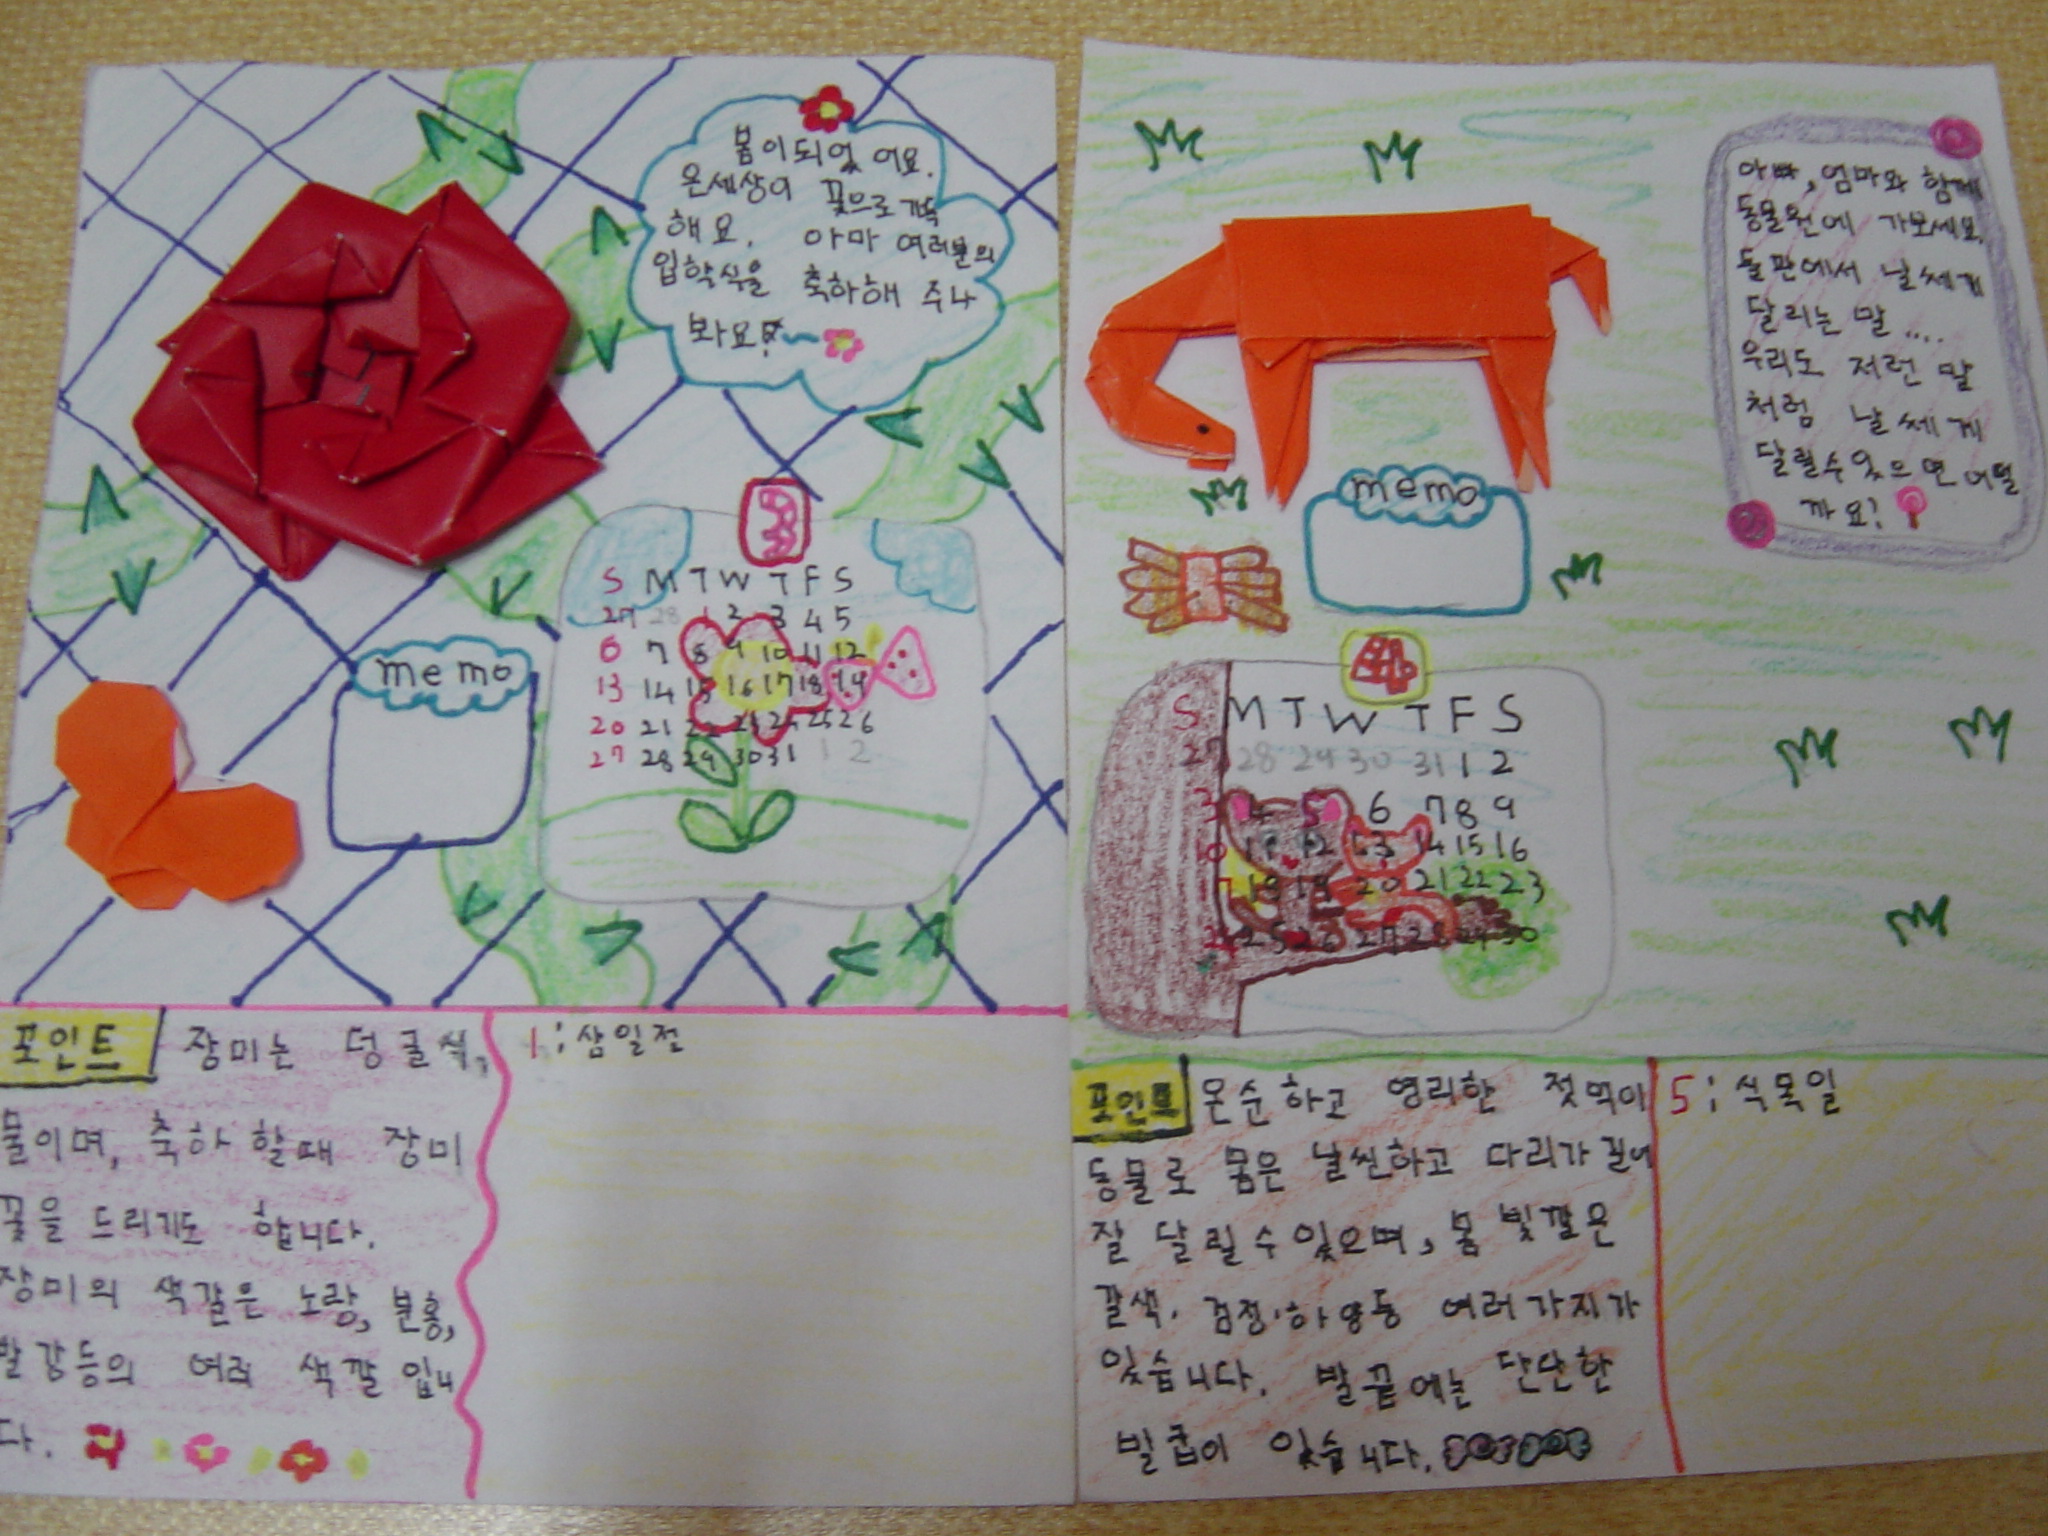 봄이되었어요.
온세상이 꽃으로가득
해요. 아마 여러분의
입학식을 축하해 주나
봐요!~
3
S M T W T F S
27 28 1 2 3 4 5
6 7 8 9 10 11 12
13 14 15 16 17 18 19
20 21 22 23 24 25 26
27 28 29 30 31 1 2
memo
포인트 장미는 덩굴식,
물이며, 축하 할때 장미
꽃을 드리기도 합니다.
장미의 색갈은 노랑, 분홍,
빨강등의 여러 색깔 입니
다.
1 : 삼일전
아빠, 엄마와 함께
동물원에 가보세요.
들판에서 날쎄게
달리는 말 ....
우리도 저런 말
처럼 날쎄게
달릴수있으면 어떨
까요?
memo
4
S M T W T F S
27 28 29 30 31 1 2
3 4 5 6 7 8 9
10 11 12 13 14 15 16
17 18 19 20 21 22 23
24 25 26 27 28 29 30
포인트 온순하고 영리한 젖먹이
동물로 몸은 날씬하고 다리가 길어
잘 달릴수있으며, 몸 빛깔은
갈색. 검정.하양등 여러가지가
있습니다. 발끝에는 단단한
발굽이 있습니다.
5 : 식목일